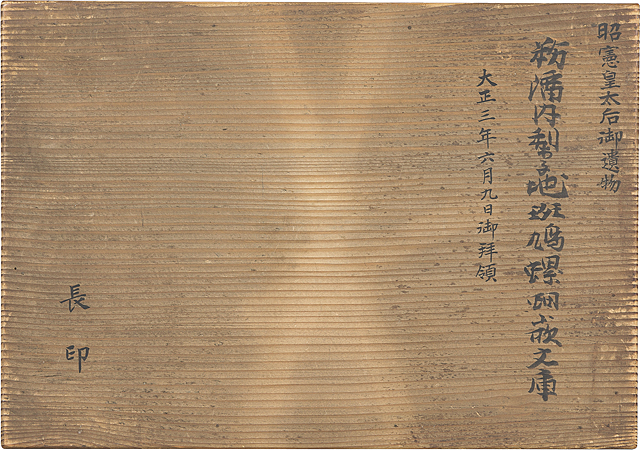 昭憲皇太后御遺物
粉溜内梨子地斑鳩螺鈿嵌文庫
大正三年六月九日御拝領
長印